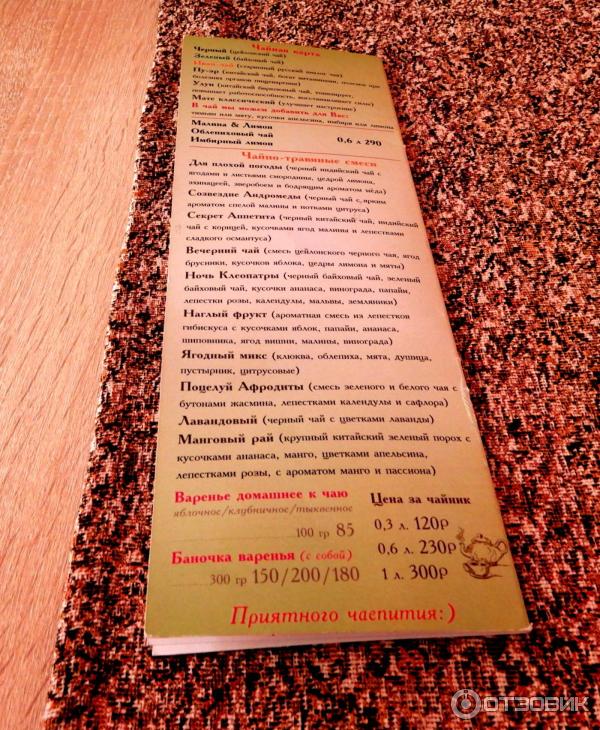 Чайная карта
Черный (цейлонский чай)
Зеленый (байховый чай)
Иван-чай (старинный русский аналог чая)
Пу-эр (китайский чай, богат витаминами, полезен при
болезнях органов пищеварения)
Улун (китайский бирюзовый чай, тонизирует,
повышает работоспособность, восстанавливает силы)
Мате классический (улучшает настроение)
В чай мы можем добавить для Вас:
тимьян или мяту, кусочки апельсина, имбиря или лимона
Малина & Лимон
Облепиховый чай 0,6 л 290
Имбирный лимон
Чайно-травяные смеси
Для плохой погоды (черный индийский чай с
ягодами и листьями смородины, цедрой лимона,
эхинацеей, зверобоем и бодрящим ароматом мёда)
Созвездие Андромеды (черный чай с ярким
ароматом спелой малины и нотками цитруса)
Секрет Аппетита (черный китайский чай, индийский
чай с корицей, кусочками ягод малины и лепестками
сладкого османтуса)
Вечерний чай (смесь цейлонского черного чая, ягод
брусники, кусочков яблока, цедры лимона и мяты)
Ночь Клеопатры (черный байховый чай, зеленый
байховый чай, кусочки ананаса, винограда, папайи,
лепестки розы, календулы, мальвы, земляники)
Наглый фрукт (ароматная смесь из лепестков
гибискуса с кусочками яблок, папайи, ананаса,
шиповника, ягод вишни, малины, винограда)
Ягодный микс (клюква, облепиха, мята, душица,
пустырник, цитрусовые)
Поцелуй Афродиты (смесь зеленого и белого чая с
бутонами жасмина, лепестками календулы и сафлора)
Лавандовый (черный чай с цветками лаванды)
Манговый рай (крупный китайский зеленый порох с
кусочками ананаса, манго, цветками апельсина,
лепестками розы, с ароматом манго и пассиона)
Варенье домашнее к чаю
яблочное/клубничное/тыквенное
100 гр 85
Баночка варенья (с собой)
300 гр 150/200/180
Цена за чайник
0,3 л. 120р
0,6 л. 230р
1 л. 300р
Приятного чаепития:)
ОТЗОВИК